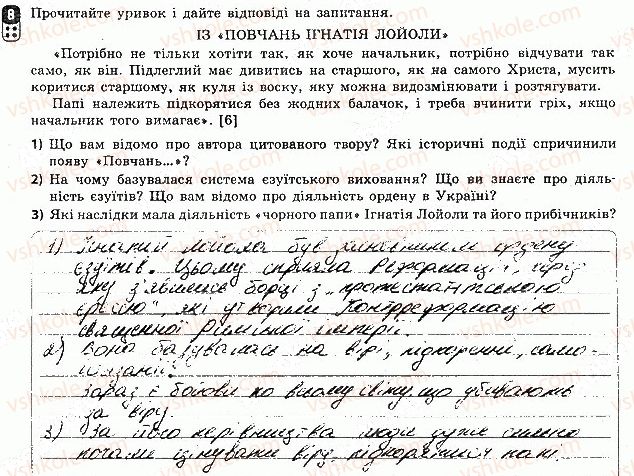 8 Прочитайте уривок і дайте відповіді на запитання.
ІЗ «ПОВЧАНЬ ІГНАТІЯ ЛОЙОЛИ»
«Потрібно не тільки хотіти так, як хоче начальник, потрібно відчувати так
само, як він. Підлеглий має дивитись на старшого, як на самого Христа, мусить
коритися старшому, як куля із воску, яку можна видозмінювати і розтягувати.
Папі належить підкорятися без жодних балачок, і треба вчинити гріх, якщо
начальник того вимагає». [6]
1) Що вам відомо про автора цитованого твору? Які історичні події спричинили
появу «Повчань...»?
2) На чому базувалася система єзуїтського виховання? Що ви знаєте про діяль-
ність єзуїтів? Що вам відомо про діяльність ордену в Україні?
3) Які наслідки мала діяльність «чорного папи» Ігнатія Лойоли та його прибічників?
1) Ігнатій Лойола був ордену
єзуїтів. Цьому сприяла Реформація,
з'явились борці з „протестантською
єрессю", які утворили Контрреформацію
священної Римської імперії.
2) Вона базувалася на вірі, підкоренні, само-
Зараз є по всьому світу, що убивають
за віру
3) За його керівництва люди дуже сильно
почали цінувати віру, папі
vshkole.com